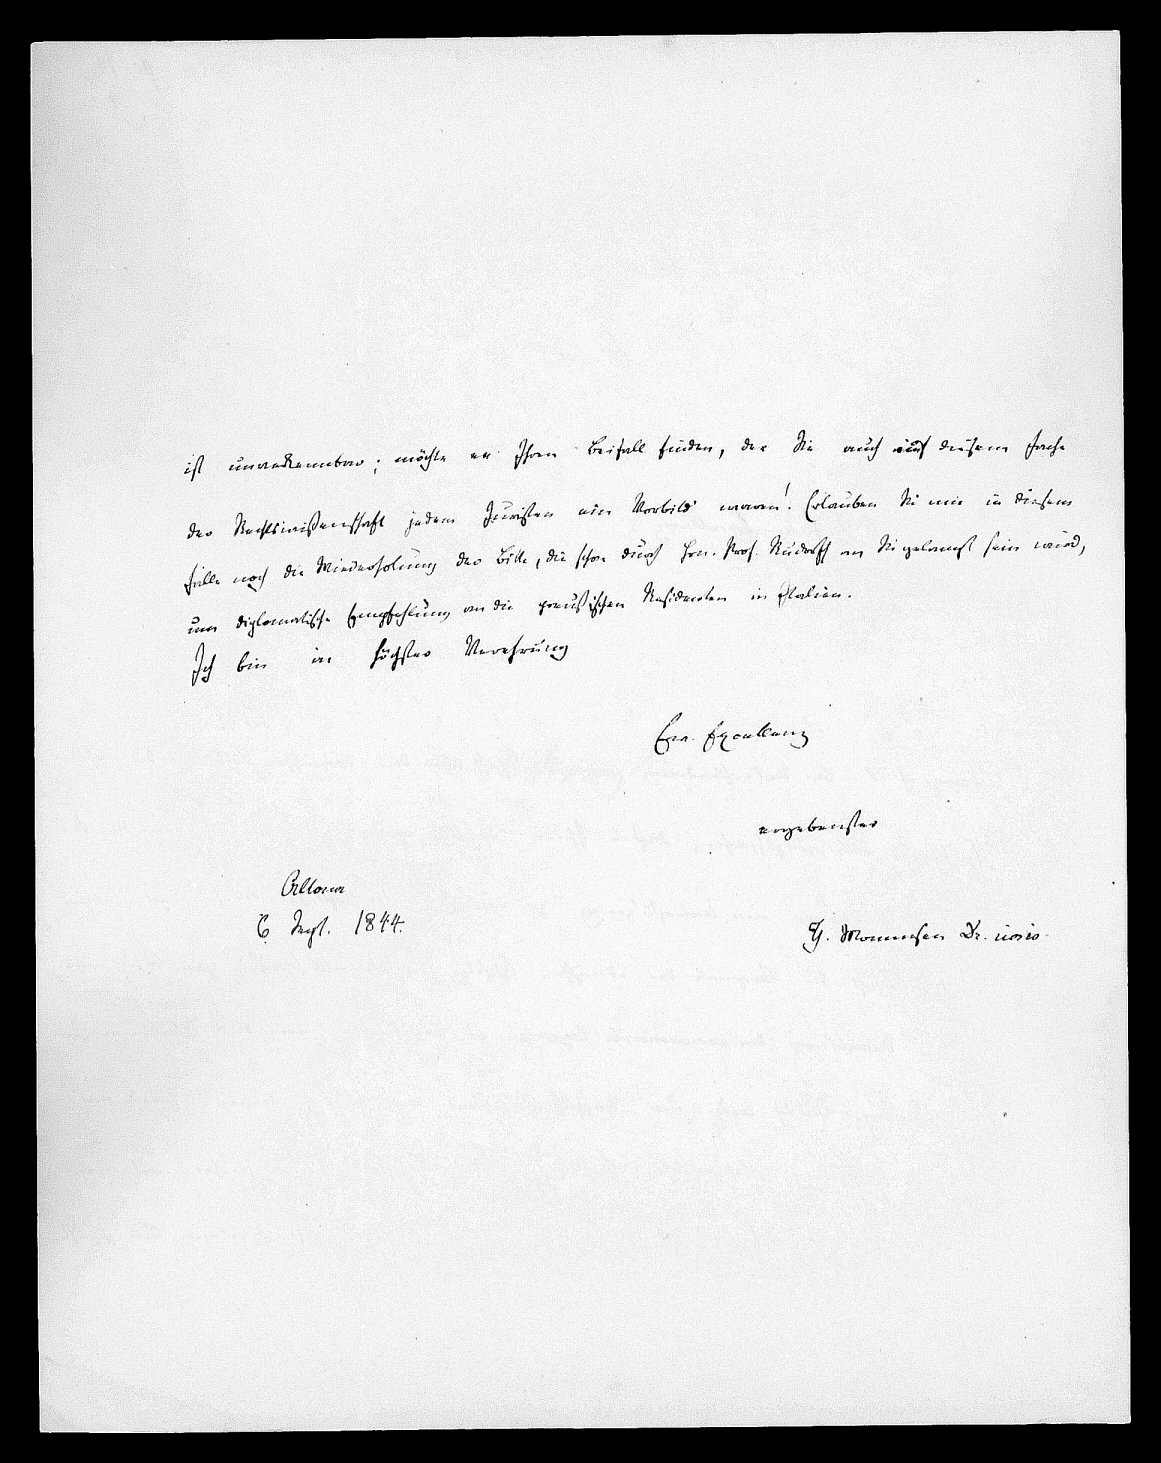 ist unverkennbar; möchte er Ihren Beifall finden, der Sie auch auf diesem Fache
der Rechtswissenschaft jedem Juristen ein Vorbild waren! Erlauben Sie mir in diesem
Falle noch die Wiederholung der Bitte, die schon durch Hrn. Prof. Rudorff an Sie gelangt sein wird,
um diplomatische Empfehlung an die preußischen Residenten in Italien.
Ich bin in höchster Verehrung
Ew. Excellenz
ergebenster
Altona
6 Sept. 1844.
Th. Mommsen Dr. iuris.